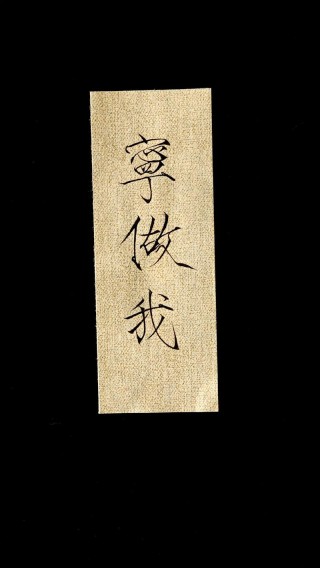 寧做我